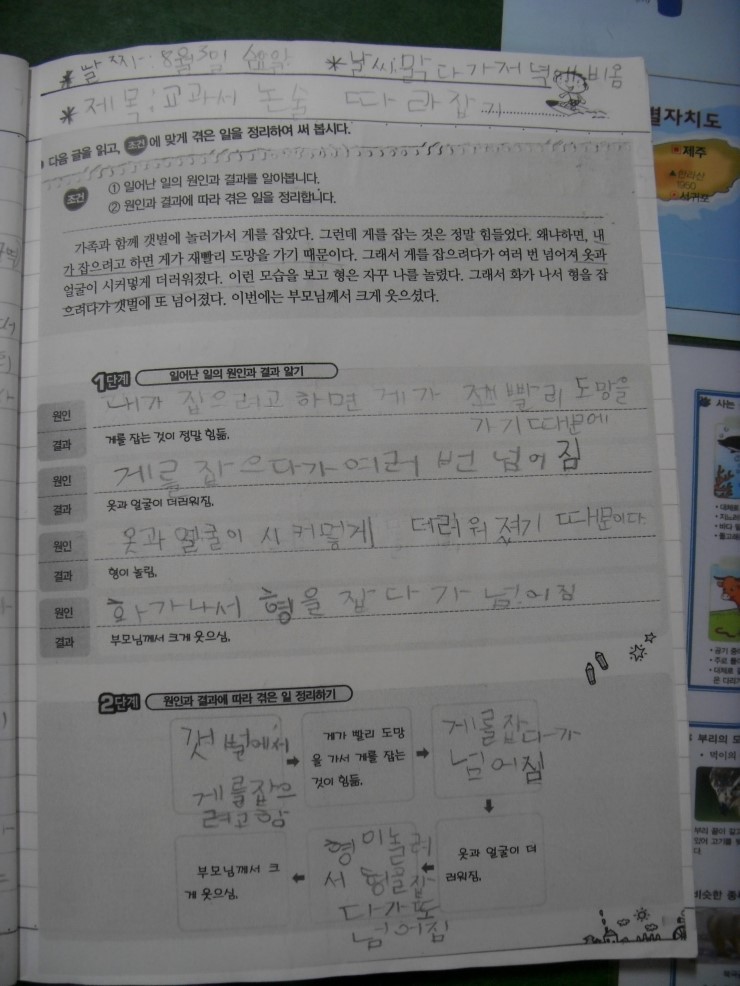 *날짜:8월3일
*날씨:맑다가저녁에비옴
*제목:교과서 논술 따라잡기
다음 글을 읽고, 조건에 맞게 겪은 일을 정리하여 써 봅시다.
조건
① 일어난 일의 원인과 결과를 알아봅니다.
② 원인과 결과에 따라 겪은 일을 정리합니다.
가족과 함께 갯벌에 놀러가서 게를 잡았다. 그런데 게를 잡는 것은 정말 힘들었다. 왜냐하면, 내
가 잡으려고 하면 게가 재빨리 도망을 가기 때문이다. 그래서 게를 잡으려다가 여러 번 넘어져 옷과
얼굴이 시커멓게 더러워졌다. 이런 모습을 보고 형은 자꾸 나를 놀렸다. 그래서 화가 나서 형을 잡
으려다가 갯벌에 또 넘어졌다. 이번에는 부모님께서 크게 웃으셨다.
1단계 일어난 일의 원인과 결과 알기
원인 내가 잡으려고 하면 게가 잽빨리 도망을
가기 때문에
결과 게를 잡는 것이 정말 힘듦.
원인 게를 잡으다가 여러 번 넘어짐
결과 옷과 얼굴이 더러워짐.
원인 옷과 얼굴이 시커멓게 더러워졌기 때문이다
결과 형이 놀림.
원인 화가나서 형을 잡다가 넘어짐
결과 부모님께서 크게 웃으심.
2단계 원인과 결과에 따라 겪은 일 정리하기
갯벌에서
게를잡으
려고함
게가 빨리 도망
을 가서 게를 잡는
것이 힘듦.
게를잡다가
넘어짐
옷과 얼굴이 더
러워짐.
형이놀려
서 형을잡
다가또
넘어짐
부모님께서 크
게 웃으심.
별자치도
제주
한라산
1950
서귀포
사는
부리의 모
먹이의
비슷한 종